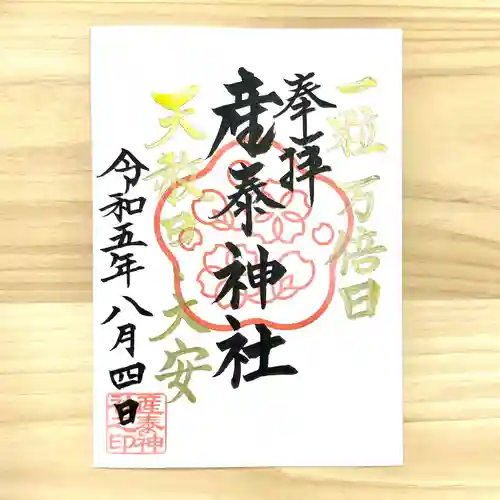 一粒万倍日
奉拝
産泰神社
天赦日・大安
令和五年八月四日
産泰神
社之印